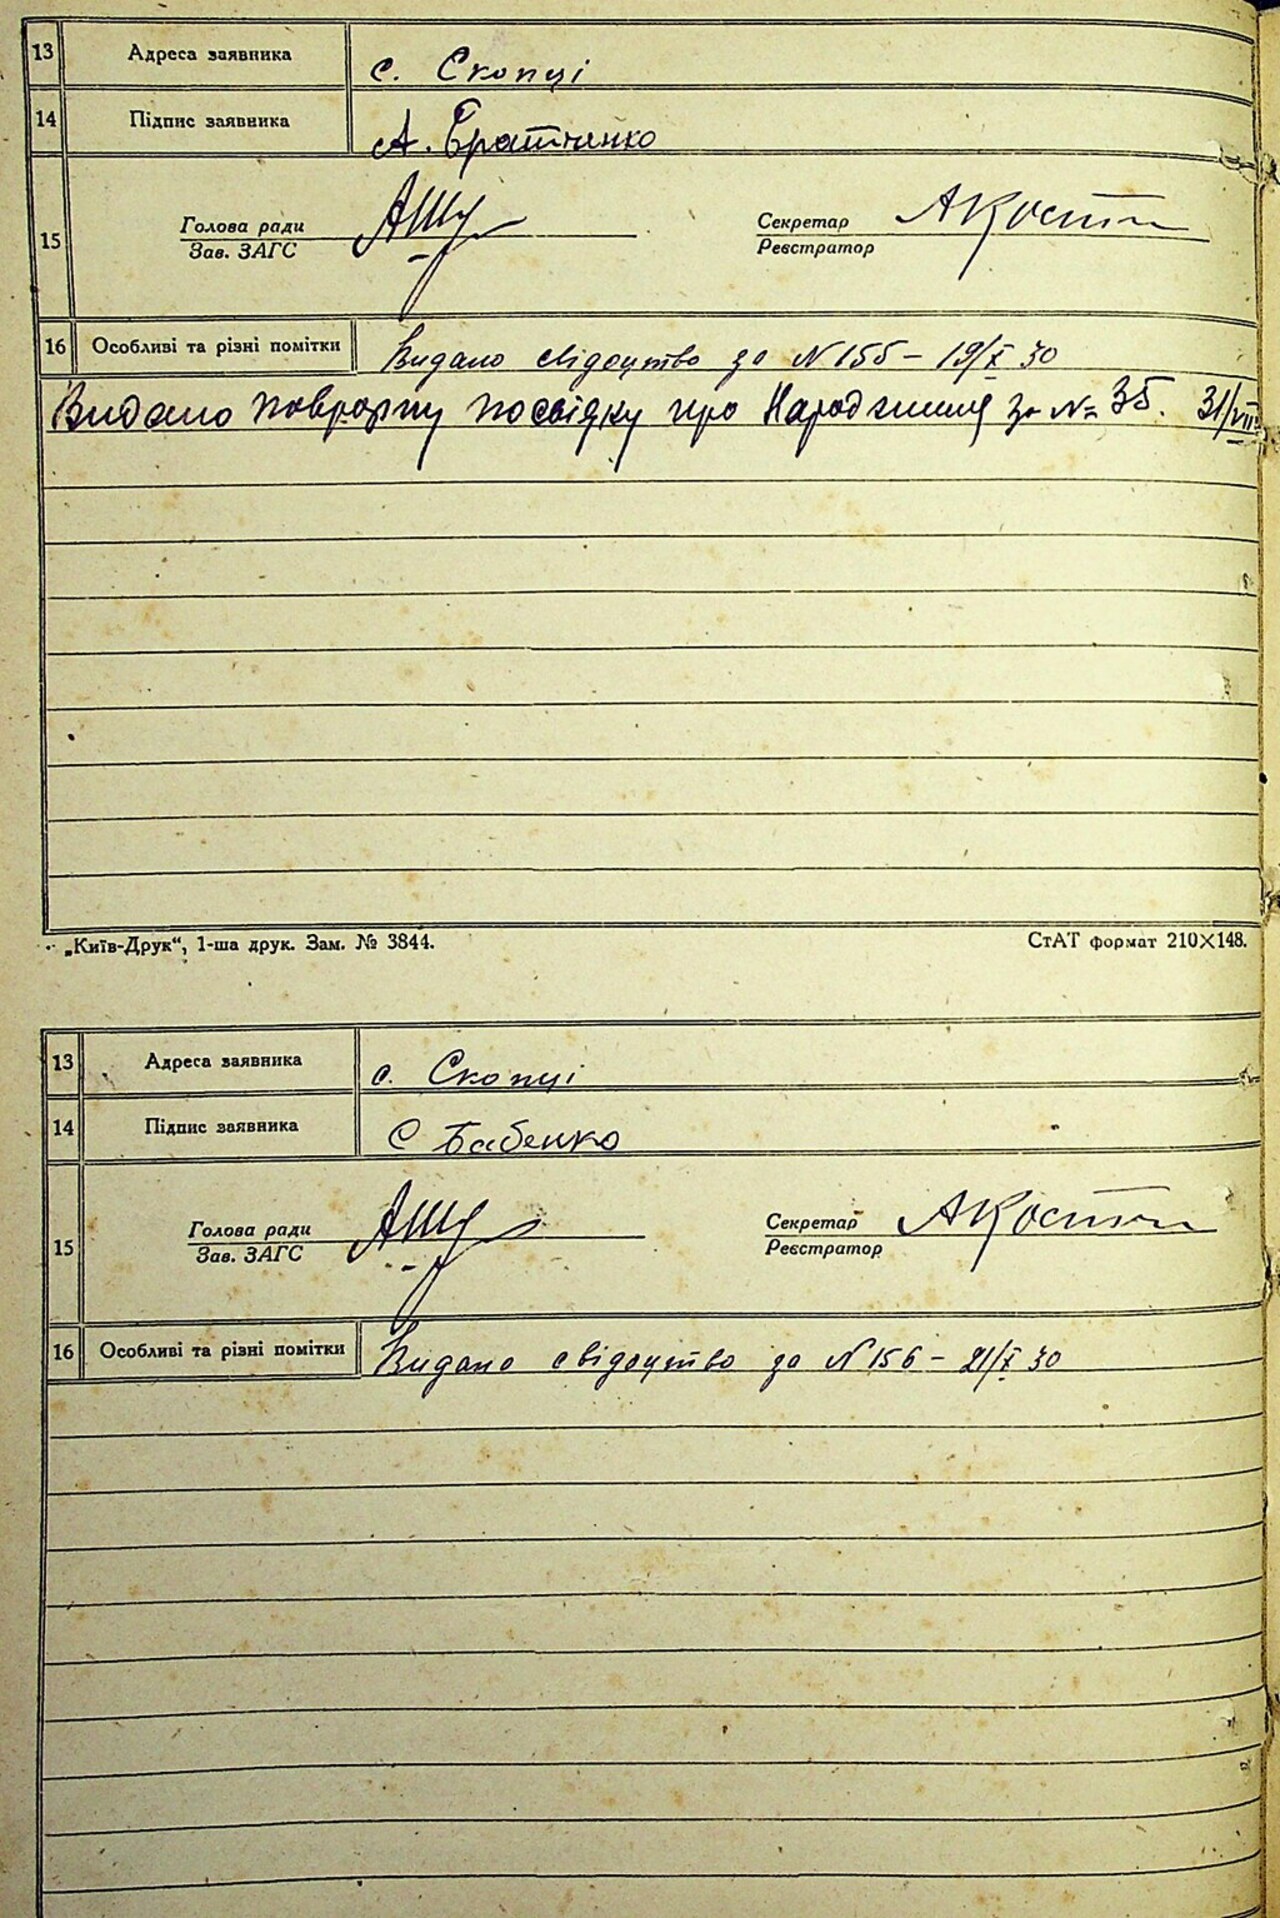 13 Адреса заявника с. Скопці
14 Підпис заявника А. Братченко
15 Голова ради Секретар
Зав. ЗАГС Реєстратор
16 Особливі та різні помітки Видано свідоцтво за N 155 – 19/X 30
Видано повторну посвідку про Народження за № 35. 31/VIII
„Київ-Друк“, 1-ша друк. Зам. № 3844. СтАТ формат 210×148.
13 Адреса заявника с. Скопці
14 Підпис заявника С Бабенко
15 Голова ради Секретар
Зав. ЗАГС Реєстратор
16 Особливі та різні помітки Видано свідоцтво за N 156 – 21/X 30